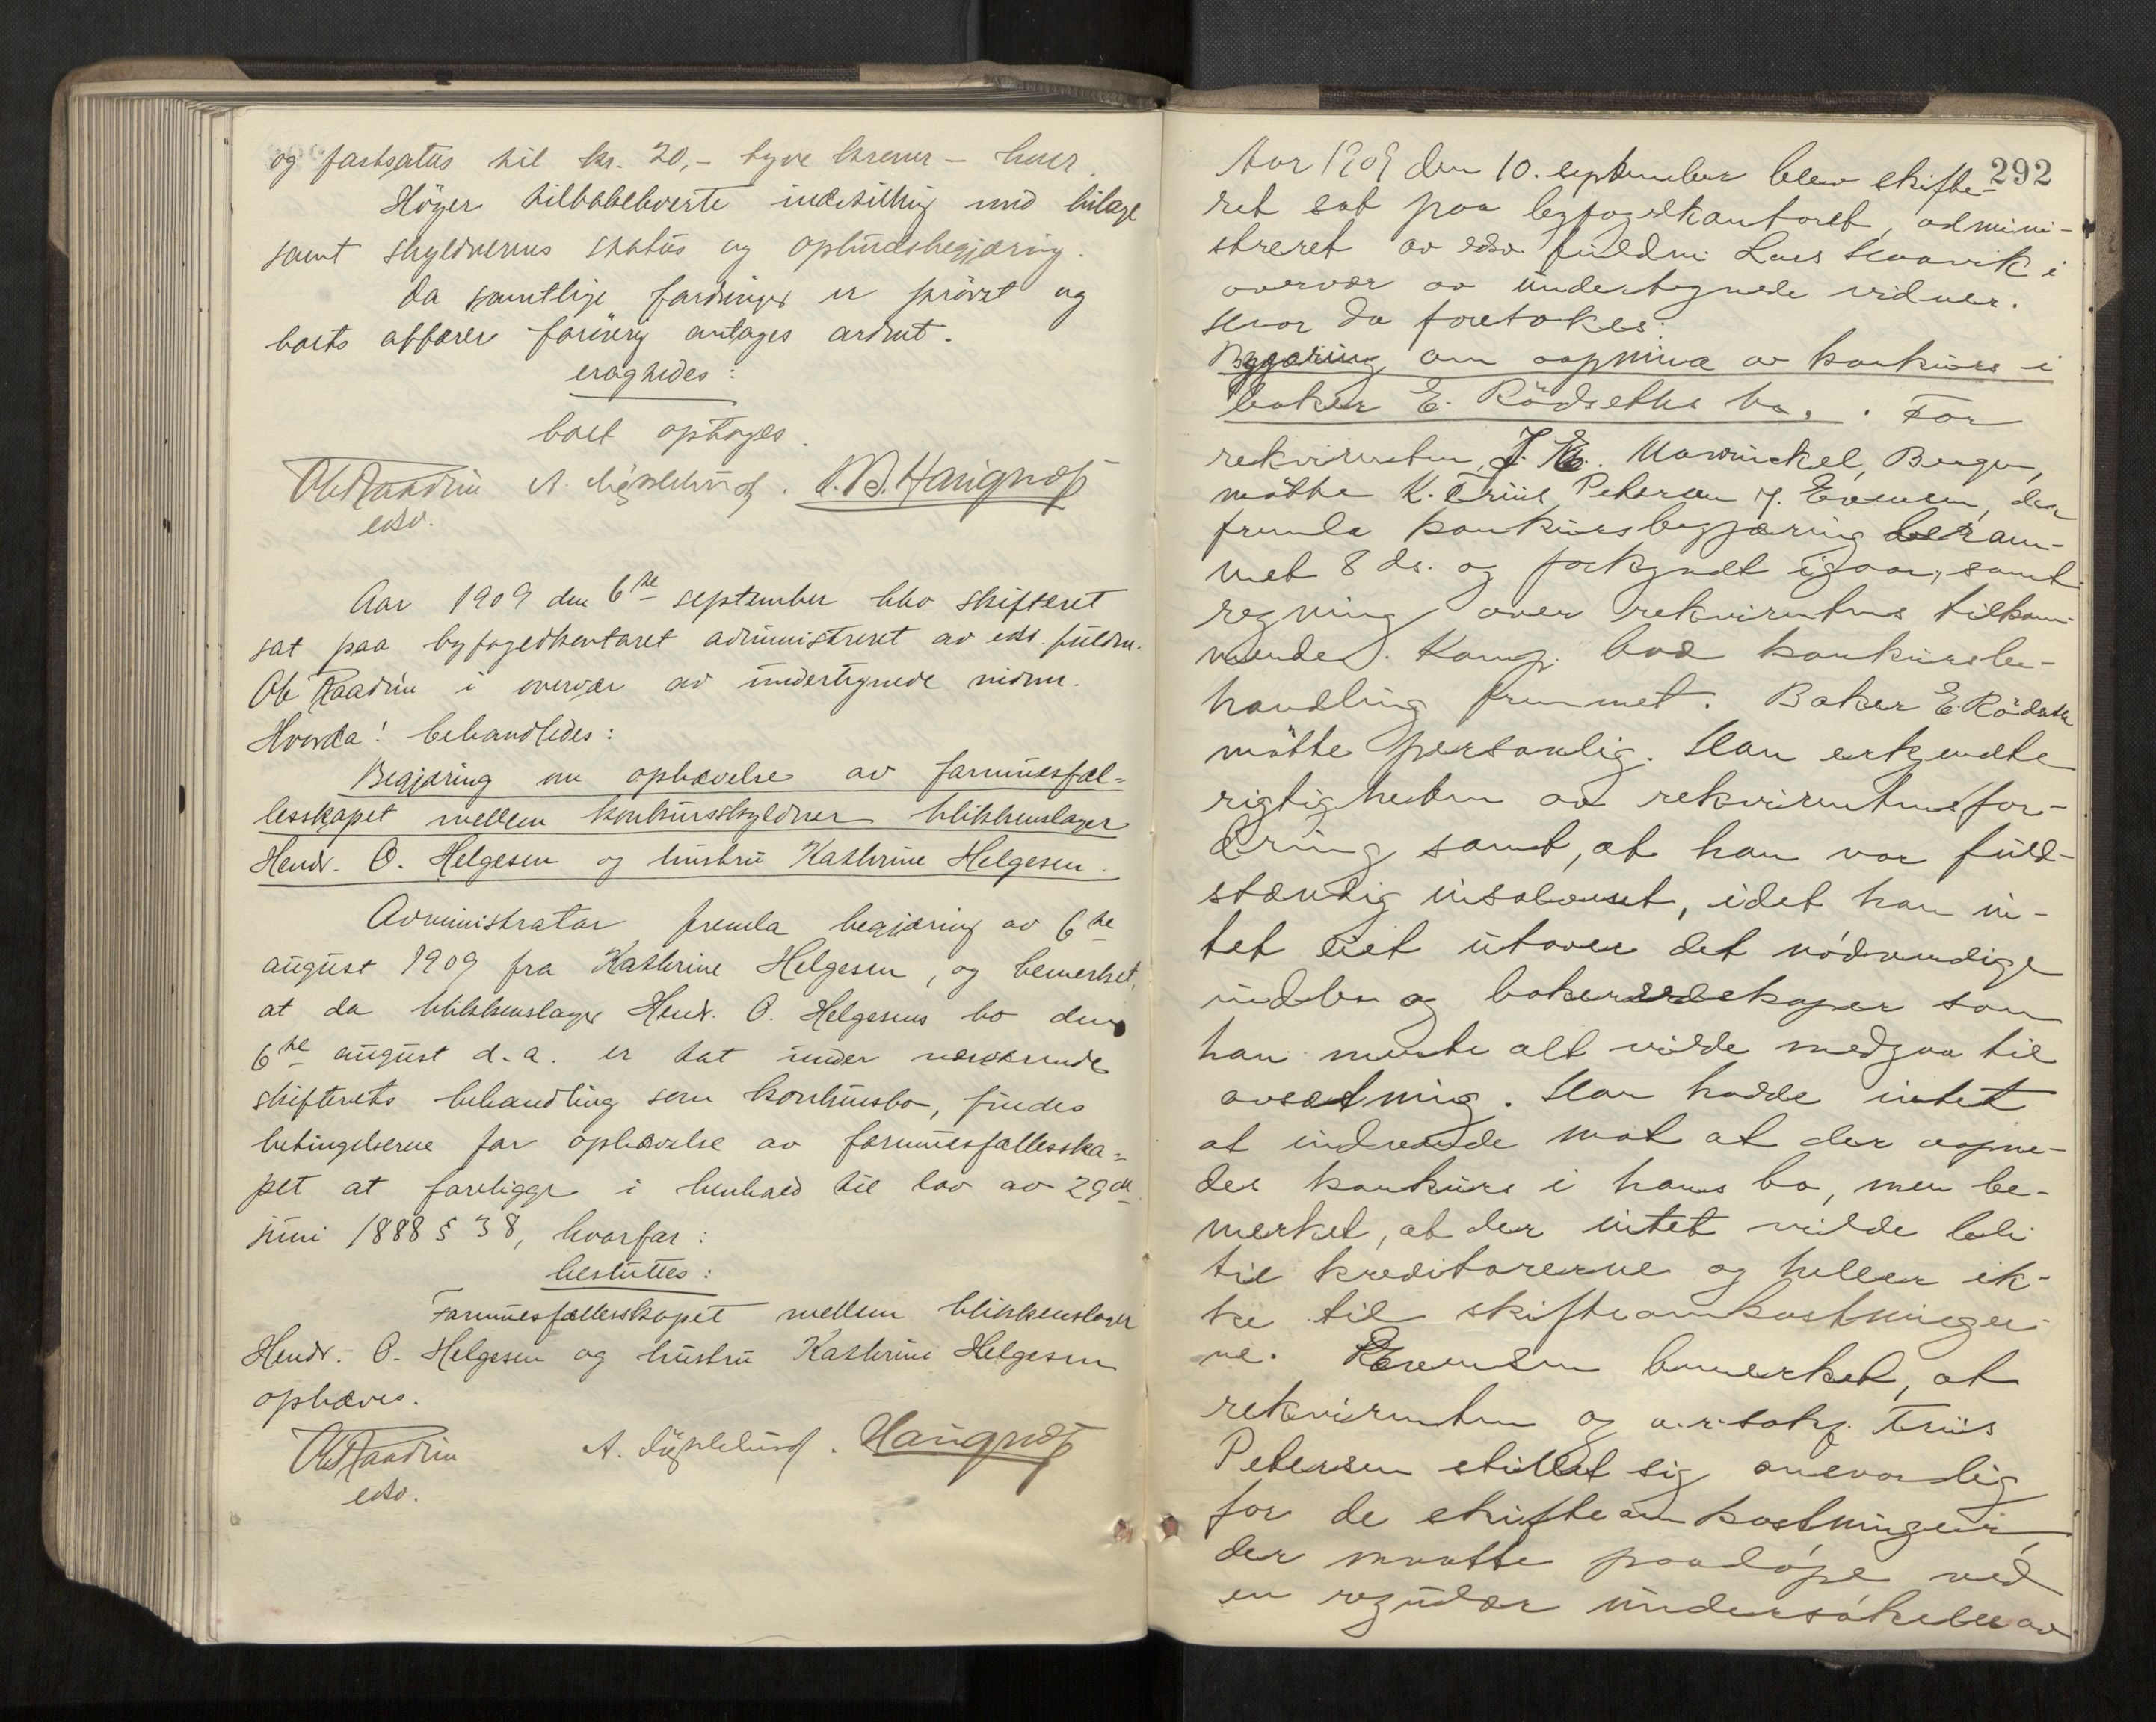 og fastsattes til kr. 20,- tyve kroner - hver.
Höyer tilbakeleverte indstilling med bilage
samt skyldnerens status og opbudsbegjæring.
Da samtlige fordringer er prövet og
boets affærer forövrig antages ordnet.
eragtedes:
boet optages.
Ole Raadim A. . Haugnæss
edsv.
Aar 1909 den 6te september blev skifteret
sat paa byfogedkontoret administreret av eds. fuldm.
Ole Raadim i overvær av undertegnede vidner.
Hvorda! behandledes:
Begjæring om ophævelse av formuesfæl=
lesskapet mellem konkursskyldner blikkenslager
Hendr. O. Helgesen og hustru Kathrine Helgesen.
Administrator fremla begjæring av 6te
august 1909 fra Kathrine Helgesen, og bemerket,
at da blikkenslager Hendr. O. Helgesens bo den
6te august d.a. er tat under nærværende
skifterets behandling som konkursbo, findes
betingelserne for ophævelse av formuesfællesska=
pet at foreligge i henhold til lov av 29de
juni 1888 § 38, hvorfor:
besluttes:
Formuesfællesskapet mellem blikkenslager
Hendr. O. Helgesen og hustru Kathrine Helgesen
ophæves.
Ole Raadim A. . Haugnæss
edsv.
292
Aar 1909 den 10. september blev skifte-
ret sat paa byfogedkontoret, admini-
streret av edsv. fuldm. Lars Haavik i
overvær av undertegnede vidner.
Hvor da foretokes:
Begjæring om aapning av konkurs i
baker E. Rödseths bo. . For
rekvirenten, J. E. Mowinckel, Bergen,
mötte K. Friis Petersen v. Evensen, der
fremla konkursbegjæring beram-
met 8 ds. og forkyndt igaar, samt
regning over rekvirentens tilkom-
mende. Komp. bad konkursbe-
handling fremmet. Baker E. Rödseth
mötte personlig. Han erkjendte
rigtigheten av rekvirentens for-
dring samt, at han var fuld-
stændig insolvent, idet han in-
tet eiet utover det nödvendige
indbo og bakerredskaper som
han mente alt vilde medgaa til
avsætning. Han hadde intet
at indvende mot at der aapne-
des konkurs i hans bo, men be-
merket, at der intet vilde bli
til kreditorerne og heller ik-
ke til skifteomkostninger-
ne. Evensen bemerket, at
rekvirenten og o.r.sakf. Friis
Petersen stillet sig ansvarlig
for de skifteomkostninger,
der maatte paalöpe ved
en regulær undersökelse av